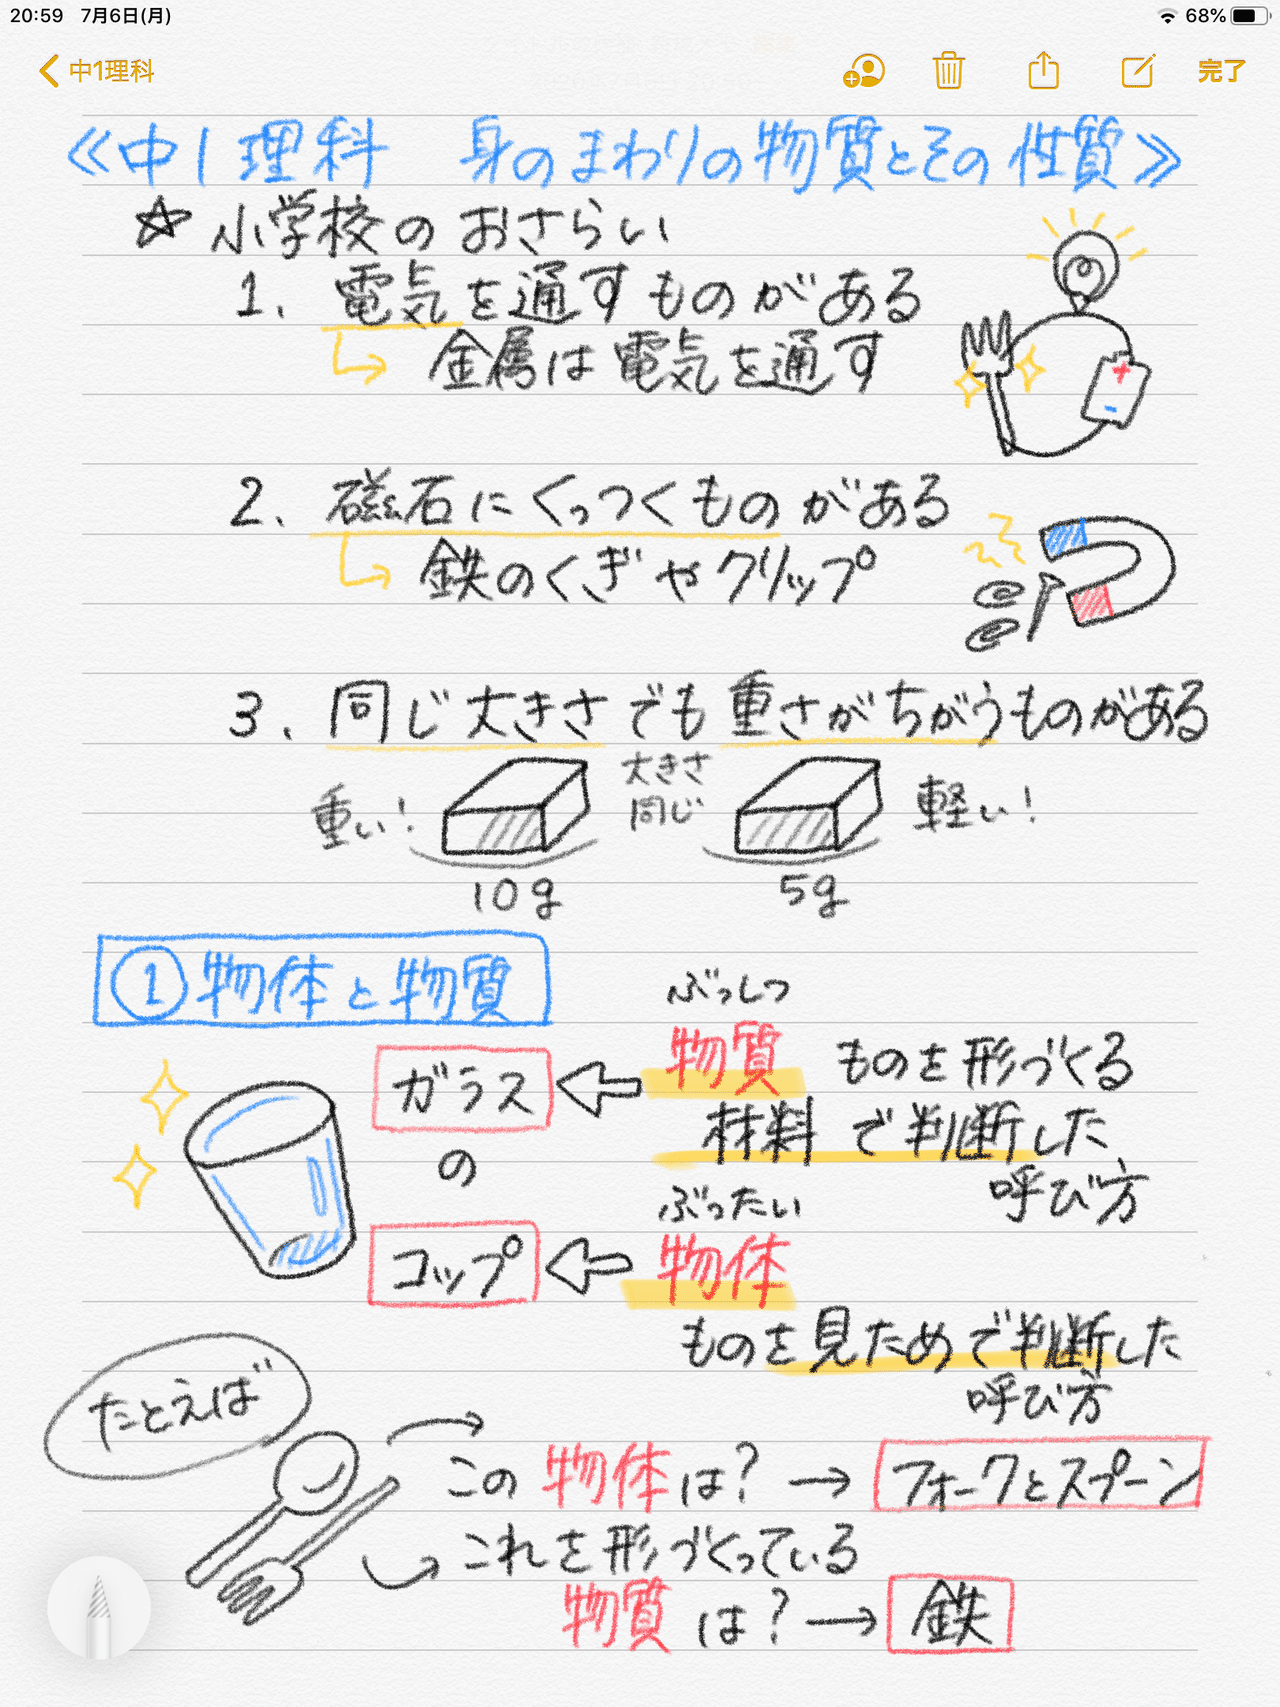 20:59 7月6日(月) 68%
中1理科 完了
≪中1理科 身のまわりの物質とその性質≫
☆小学校のおさらい
1. 電気を通すものがある
金属は電気を通す
2. 磁石にくっつくものがある
鉄のくぎやクリップ
3. 同じ大きさでも重さがちがうものがある
重い! 大きさ同じ 軽い!
10g 5g
①物体と物質
ぶっしつ
ガラス ← 物質 ものを形づくる
材料で判断した
呼び方
の
ぶったい
コップ ← 物体
ものを見ためで判断した
呼び方
たとえば
この物体は? → フォークとスプーン
これを形づくっている
物質は? → 鉄